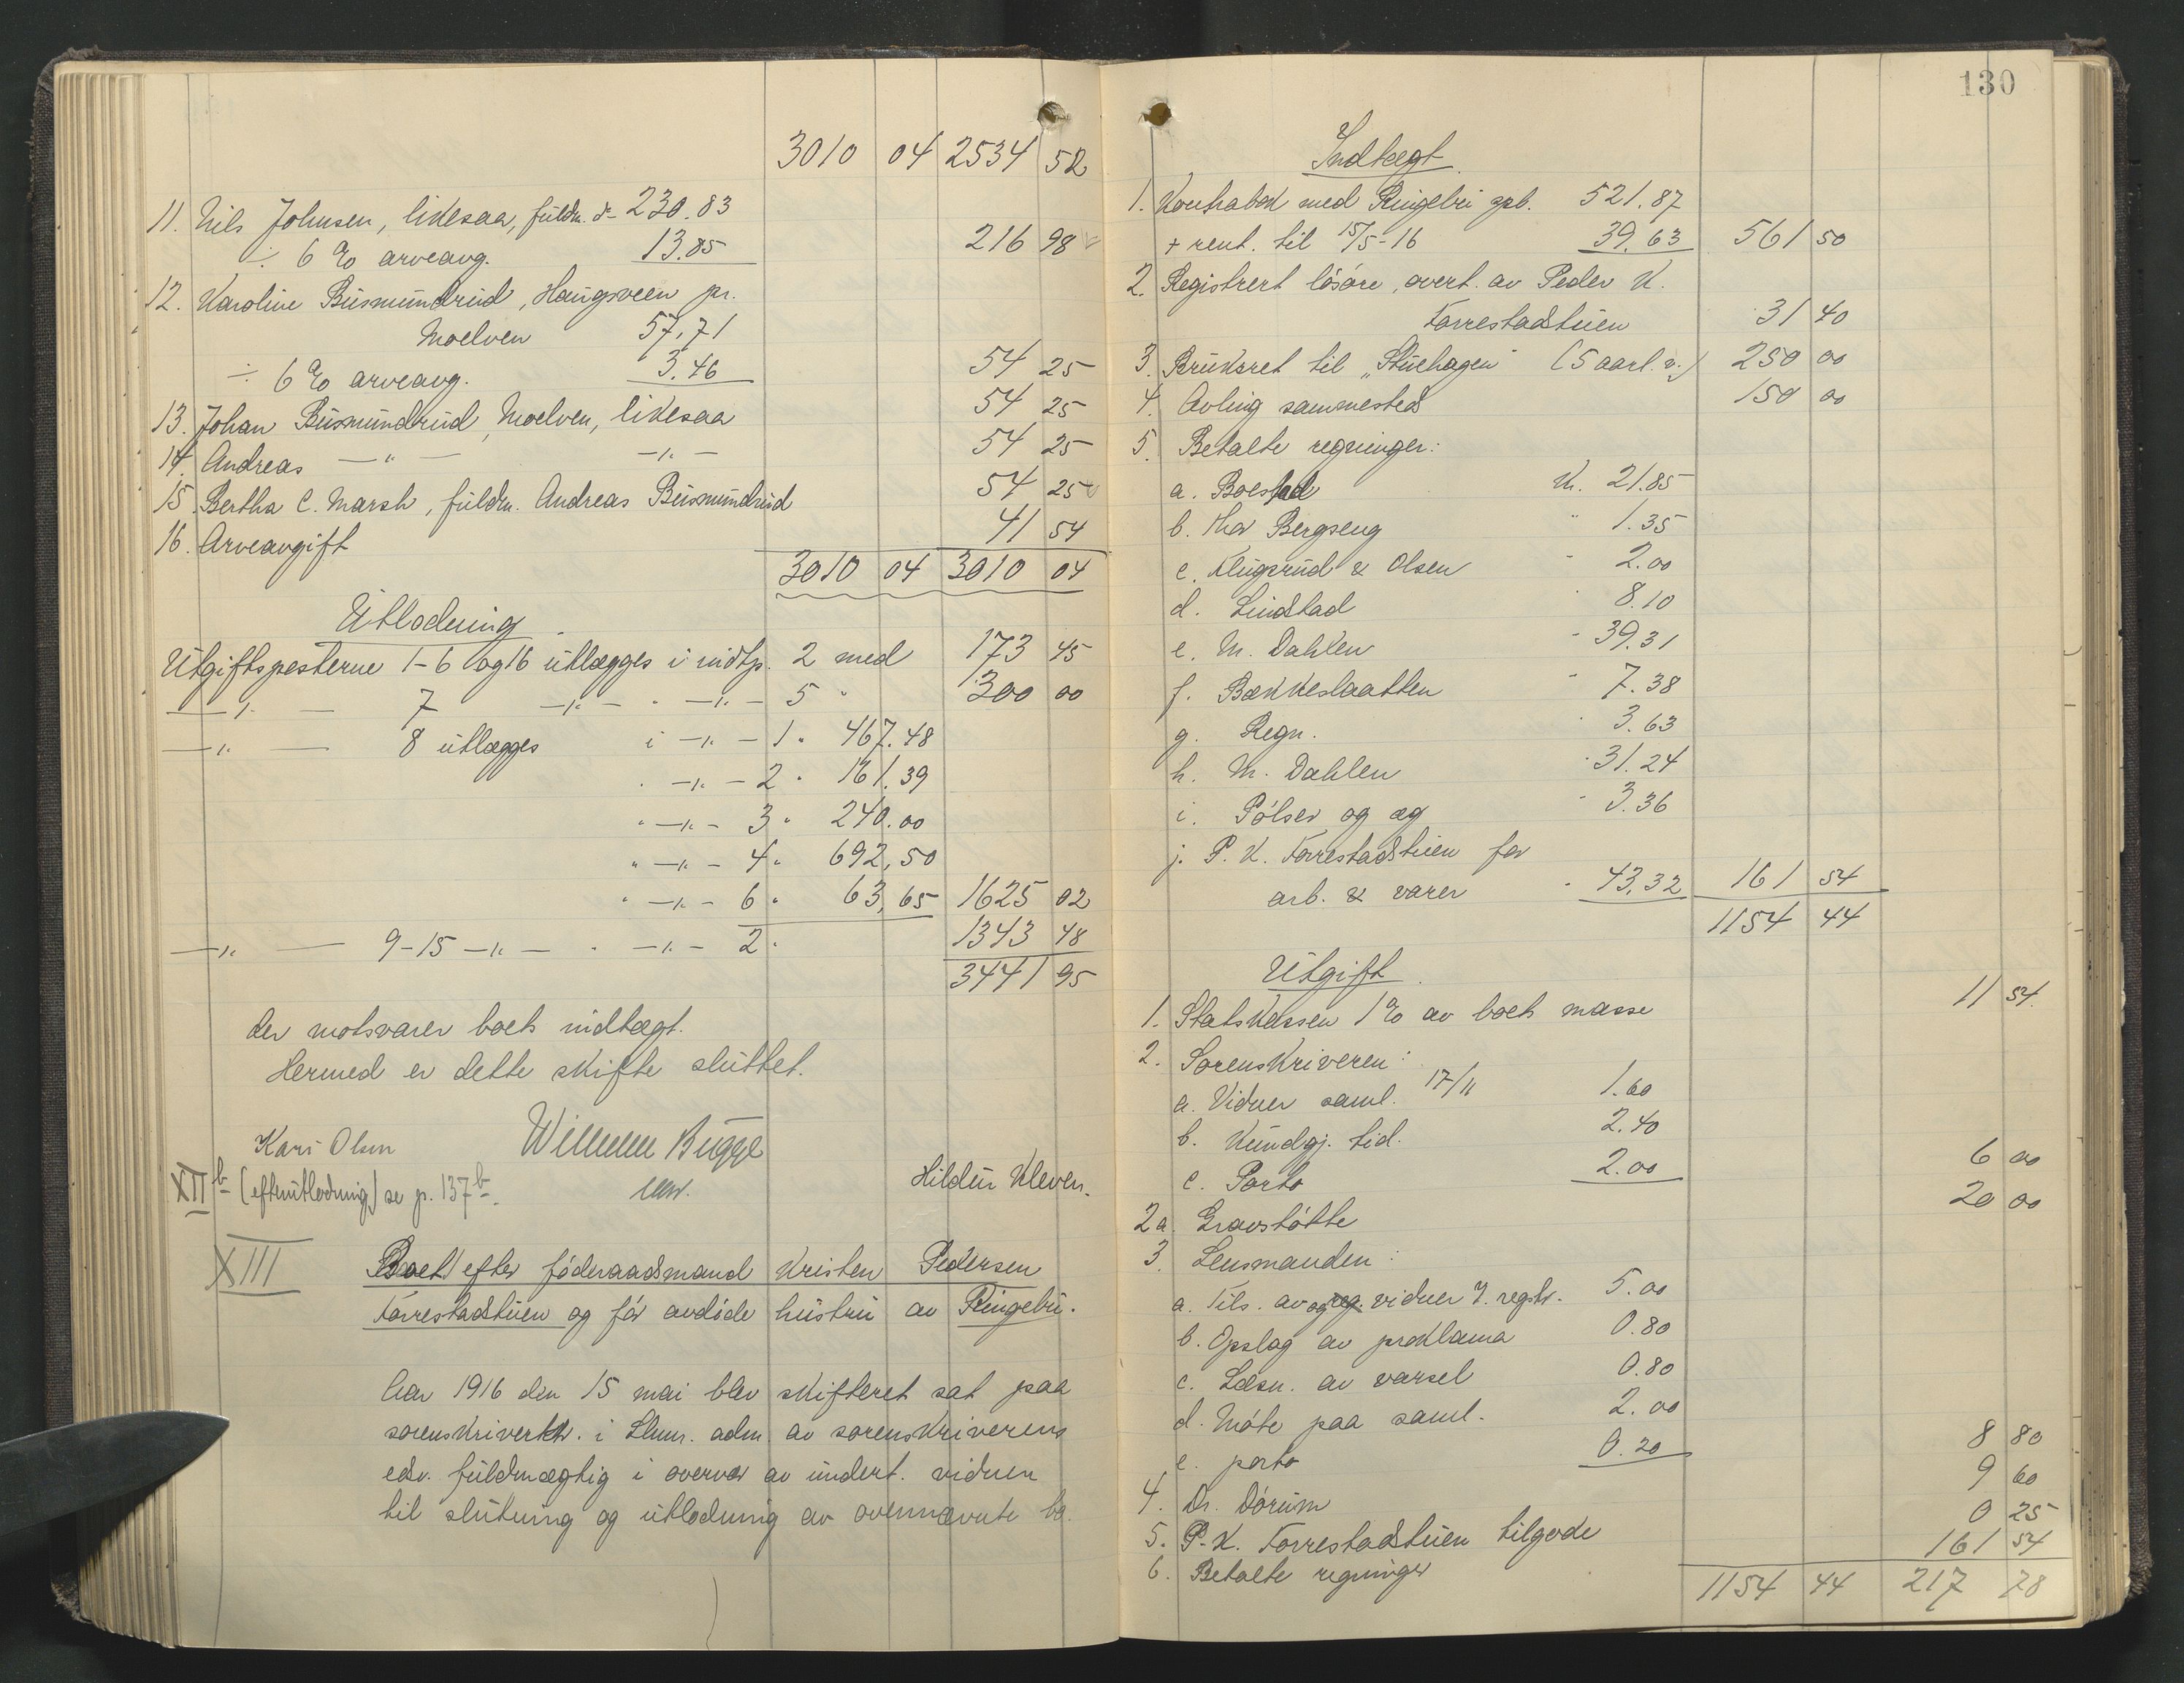 3010 04 2534 52
11. Nils Johnsen, likesaa, fuldm. d- 230.83
÷ 6 % arveavg. 13.85 216 98
12. Karoline Busmundrud, Haugsveen pr.
Moelven 57.71
÷ 6 % arveavg. 3.46 54 25
13. Johan Busmundrud, Moelven, likesaa 54 25
14. Andreas —"— —"— 54 25
15. Bertha C. Marsh, fuldm. Andreas Busmundrud 54 25
16. Arveavgift 41 54
3010 04 3010 04
Utlodning
Utgiftsposterne 1-6 og 16 utlægges i indtp. 2 med 173 45
—"— 7 —"— " —"— 5 " 300 00
—"— 8 utlægges i —"— 1 " 467.48
" —"— 2 " 161.39
" —"— 3 " 240.00
" —"— 4 " 692,50
" —"— 6 " 63,65 1625 02
—"— 9-15 —"— " —"— 2 " 1343 48
3441 95
der motsvarer boets indtægt.
Hermed er dette skifte sluttet.
Kari Olsen Wilhelm Bugge
edv. Hildur Kleven.
XII b (efterutlodning) se p. 137 b.
XIII Boet efter föderaadsmand Kristen Pedersen
Forrestadstuen og för avdöde hustru av Ringebu.
Aar 1916 den 15 mai blev skifteret sat paa
sorenskriverktr. i Lhmr. adm. av sorenskriverens
edv. fuldmægtig i overvær av undert. vidner
til slutning og utlodning av ovennævnte bo.
130
Indtægt
1. Kontrabok med Ringebu spb. 521.87
+ rent. til 15/5-16 39.63 561 50
2. Registrert lösöre, overt. av Peder K.
Forrestadstuen 31 40
3. Bruksret til „Stuehagen" (5 aarl. v.) 250 00
4. Avling sammesteds 150 00
5. Betalte regninger:
a. Boestad K. 21.85
b. Thor Bergseng " 1.35
c. Klugsrud & Olsen " 2.00
d. Lindstad " 8.10
e. M. Dahlen " 39.31
f. Bækkeslaatten " 7.38
g. Regn. " 3.63
h. M. Dahlen " 31.24
i. Pölser og æg " 3.36
j. P. K. Forrestadstuen for
arb. & varer " 43.32 161 54
1154 44
Utgift
1. Statskassen 1 % av boets masse 11 54
2. Sorenskriveren:
a. Vidner saml. 17/11 1.60
b. Kundgj. tid. 2.40
c. Porto 2.00 6 00
2a. Gravstötte 20 00
3. Lensmanden:
a. Tils. av og reg. vidner v. regstr. 5.00
b. Opslag av proklama 0.80
c. Læsn. av varsel 0.80
d. Möte paa saml. 2.00
e. porto 0.20 8 80
4. Dr. Dörum 9 60
5. P. K. Forrestadstuen tilgode 0 25
6. Betalte regninger 161 54
1154 44 217 78